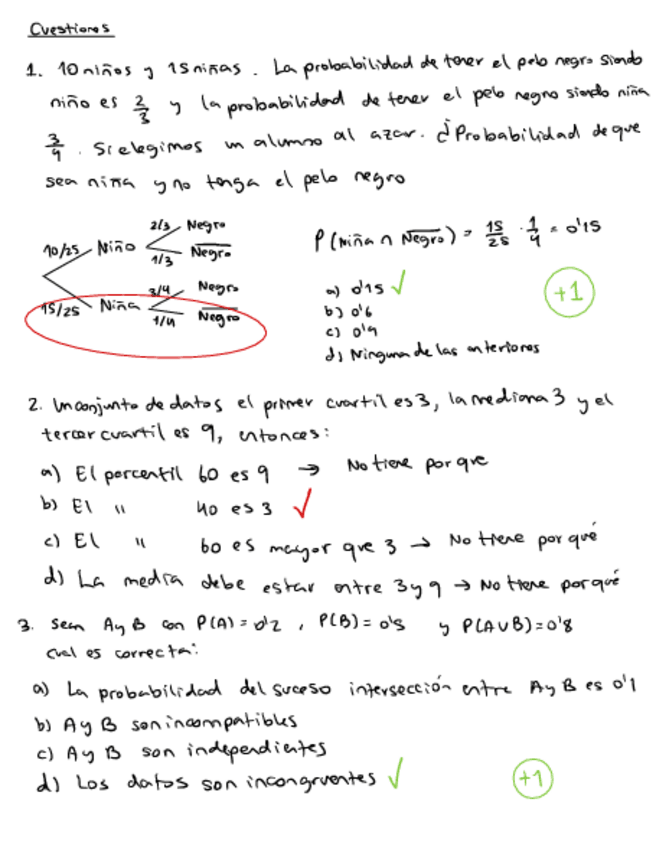 Cuestiones
1. 10 niños y 15 niñas. La probabilidad de tener el pelo negro siendo
niño es 2/3 y la probabilidad de tener el pelo negro siendo niña
3/4. Si elegimos un alumno al azar. ¿Probabilidad de que
sea niña y no tenga el pelo negro
10/25 Niño 2/3 Negro
1/3 N̅e̅g̅r̅o̅
15/25 Niña 3/4 Negro
1/4 N̅e̅g̅r̅o̅
P(niña ∩ N̅e̅g̅r̅o̅) = 15/25 · 1/4 = 0'15
a) 0'15 ✓
b) 0'6
c) 0'9
d) Ninguna de las anteriores
+1
2. Un conjunto de datos el primer cuartil es 3, la mediana 3 y el
tercer cuartil es 9, entonces:
a) El percentil 60 es 9 → No tiene por que
b) El " 40 es 3 ✓
c) El " 60 es mayor que 3 → No tiene por qué
d) La media debe estar entre 3 y 9 → No tiene por qué
3. Sean A y B con P(A) = 0'2, P(B) = 0'5 y P(A∪B) = 0'8
cual es correcta:
a) La probabilidad del suceso intersección entre A y B es 0'1
b) A y B son incompatibles
c) A y B son independientes
d) Los datos son incongruentes ✓
+1